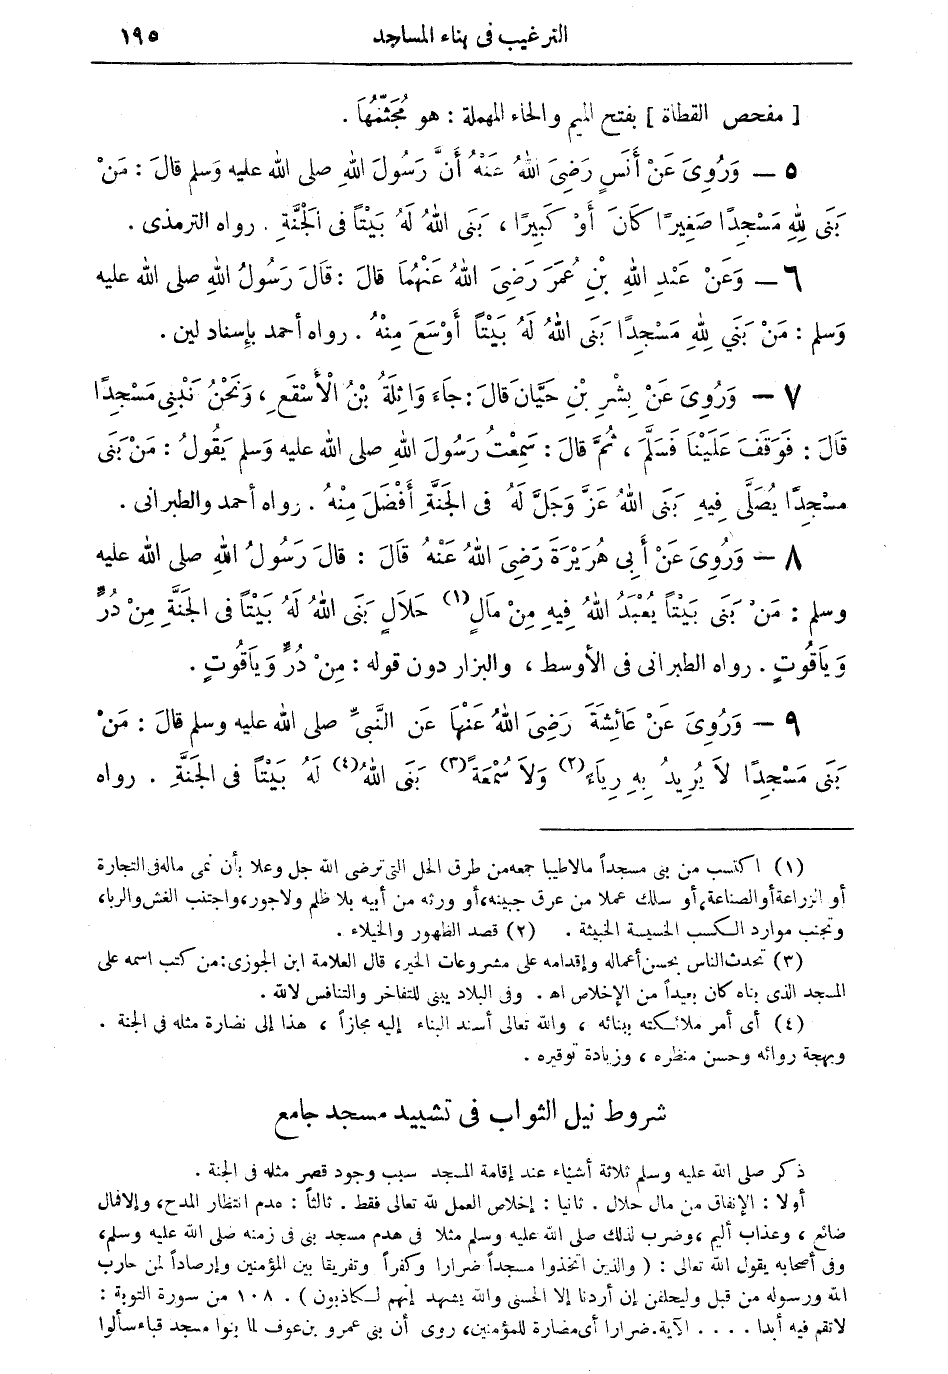 الترغيب فى بناء المساجد ١٩٥
[ مفحص القطاة ] بفتح الميم والحاء المهملة : هو مُجَثَّمُهَا .
٥ — وَرُوِىَ عَنْ أَنَسٍ رَضِىَ اللهُ عَنْهُ أَنَّ رَسُولَ اللهِ صلى الله عليه وَسلم قالَ : مَنْ
بَنَى لِلّهِ مَسْجِدًا صَغِيرًا كانَ أَوْ كَبِيرًا ، بَنَى اللهُ لَهُ بَيْتاً فى الجَنَّةِ . رواه الترمذى .
٦ — وَعَنْ عَبْدِ اللهِ بْنِ عُمَرَ رَضِىَ اللهُ عَنْهُمَا قالَ : قَالَ رَسُولُ اللهِ صلى الله عليه
وَسلم : مَنْ بَنَي لِلّهِ مَسْجِدًا بَنَى اللهُ لَهُ بَيْتاً أَوْسَعَ مِنْهُ . رواه أحمد بإسناد لين .
٧ — وَرُوِىَ عَنْ بِشْرِ بْنِ حَيَّانَ قالَ : جاءَ وَاثِلَةُ بْنُ الْأَسْقَعِ ، وَنَحْنُ نَبْنِى مَسْجِدًا
قالَ : فَوَقَفَ عَلَيْنَا فَسَلَّمَ ، ثُمَّ قالَ : سَمِعْتُ رَسُولَ اللهِ صلى الله عليه وَسلم يَقُولُ : مَنْ بَنَى
مسْجِدًا يُصَلَّى فِيهِ بَنَى اللهُ عَزَّ وَجَلَّ لَهُ فى الجَنَّةِ أَفْضَلَ مِنْهُ . رواه أحمد والطبرانى .
٨ — وَرُوِىَ عَنْ أَبِى هُرَيْرَةَ رَضِىَ اللهُ عَنْهُ قَالَ : قالَ رَسُولُ اللهِ صلى الله عليه
وسلم : مَنْ بَنَى بَيْتاً يُعْبَدُ اللهُ فِيهِ مِنْ مَالٍ (١) حَلَالٍ بَنَى اللهُ لَهُ بَيْتاً فى الجَنَّةِ مِنْ دُرٍّ
وَيَاقُوتٍ . رواه الطبرانى فى الأوسط ، والبزار دون قوله : مِنْ دُرٍّ وَيَاقُوتٍ .
٩ — وَرُوِىَ عَنْ عَائِشَةَ رَضِىَ اللهُ عَنْهَا عَنِ النَّبِىِّ صلى الله عليه وسلم قالَ : مَنْ
بَنَى مَسْجِدًا لاَ يُرِيدُ بِهِ رِيَاءً (٢) وَلاَ سُمْعَةً (٣) بَنَى اللهُ (٤) لَهُ بَيْتاً فى الجَنَّةِ . رواه
(١) اكتسب من بنى مسجداً مالا طيبا جمعه من طرق الحل التى ترضى الله جل وعلا بأن نمى ماله فى التجارة
أو الزراعة أو الصناعة، أو سلك عملا من عرق جبينه، أو ورثه من أبيه بلا ظلم ولا جور، واجتنب الغش والربا،
وتجنب موارد الكسب الخسيسة الخبيثة . (٢) قصد الظهور والخيلاء .
(٣) تحدث الناس بحسن أعماله وإقدامه على مشروعات الخير، قال العلامة ابن الجوزى: من كتب اسمه على
المسجد الذى بناه كان بعيداً من الإخلاص اه . وفى البلاد يبنى للتفاخر والتنافس لا لله .
(٤) أى أمر ملائكته ببنائه ، والله تعالى أسند البناء إليه مجازاً ، هذا إلى نضارة مثله فى الجنة .
وبهجة روائه وحسن منظره ، وزيادة توقيره .
شروط نيل الثواب فى تشييد مسجد جامع
ذكر صلى الله عليه وسلم ثلاثة أشياء عند إقامة المسجد سبب وجود قصر مثله فى الجنة .
أولا : الإنفاق من مال حلال . ثانيا : إخلاص العمل لله تعالى فقط . ثالثاً : عدم انتظار المدح، وإلا فمال
ضائع ، وعذاب أليم ، وضرب لذلك صلى الله عليه وسلم مثلا فى هدم مسجد بنى فى زمنه صلى الله عليه وسلم،
وفى أصحابه يقول الله تعالى : ( والذين اتخذوا مسجداً ضرارا وكفراً وتفريقا بين المؤمنين وإرصاداً لمن حارب
الله ورسوله من قبل وليحلفن إن أردنا إلا الحسنى والله يشهد إنهم لكاذبون ) . ١٠٨ من سورة التوبة :
لا تقم فيه أبدا . . . . الآية. ضرارا أى مضارة للمؤمنين، روى أن بنى عمرو بن عوف لما بنوا مسجد قباء سألوا